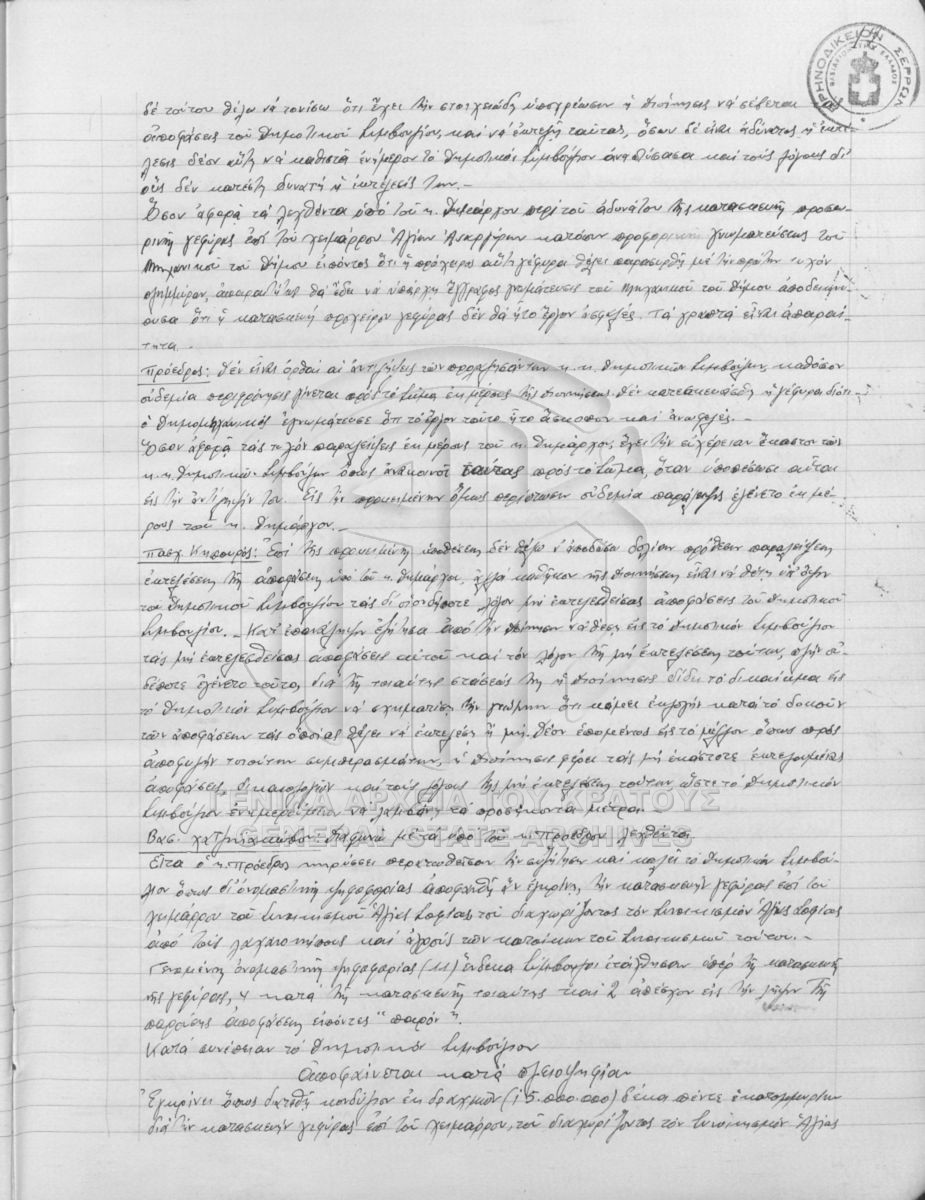 ΕΙΡΗΝΟΔΙΚΕΙΟΝ ΣΕΡΡΩΝ
δέ τούτου θέλω νά τονίσω ὅτι ἔχει τήν στοιχειώδη ὑποχρέωσιν ἡ Διοίκησις νά σέβεται τάς
ἀποφάσεις τοῦ Δημοτικοῦ Συμβουλίου, καί νά ἐκτελῇ ταύτας, ὅσων δέ εἶναι ἀδύνατος ἡ ἐκτέ-
λεσις δέον αὕτη νά καθιστᾷ ἐνήμερον τό Δημοτικόν Συμβούλιον ἀναπτύσσουσα καί τούς λόγους δι'
οὕς δέν κατέστη δυνατή ἡ ἐκτέλεσίς των.-
Ὅσον ἀφορᾷ τά λεχθέντα ὑπό τοῦ κ. Δημάρχου περί τοῦ ἀδυνάτου τῆς κατασκευῆς προσω-
ρινῆς γεφύρας ἐπί τοῦ χειμάρρου Ἁγίων Ἀναργύρων κατόπιν προφορικῆς γνωματεύσεως τοῦ
Μηχανικοῦ τοῦ Δήμου εἰπόντος ὅτι ἡ πρόχειρος αὕτη γέφυρα θέλει παρασυρθῆ μέ τήν πρώτην τυχόν
πλημμύραν, ἀπαραιτήτως θά ἔδει νά ὑπάρχῃ ἔγγραφος γνωμάτευσις τοῦ Μηχανικοῦ τοῦ Δήμου ἀποδεικνύ-
ουσα ὅτι ἡ κατασκευή προχείρου γεφύρας δέν θά ἦτο ἔργον ἀσφαλές. Τά γραπτά εἶναι ἀπαραί-
τητα.
Πρόεδρος: Δέν εἶναι ὀρθαί αἱ ἀντιλήψεις τῶν προλαλησάντων κ.κ. Δημοτικῶν Συμβούλων, καθόσον
οὐδεμία περιφρόνησις γίνεται πρός τό Σῶμα ἐκ μέρους τῆς Διοικήσεως. Δέν κατεσκευάσθη ἡ γέφυρα διότι
ὁ Δημομηχανικός ἐγνωμάτευσε ὅτι τό ἔργον τοῦτο ἦτο ἄσκοπον καί ἀνωφελές.-
Ὅσον ἀφορᾷ τάς τυχόν παραλείψεις ἐκ μέρους τοῦ κ. Δημάρχου, ἔχει τήν εὐχέρειαν ἕκαστος τῶν
κ.κ. Δημοτικῶν Συμβούλων ὅπως ἀνακοινοῖ ταύτας πρός τό Σῶμα, ὅταν ὑποπέσωσι αὗται
εἰς τήν ἀντίληψίν του. Εἰς τήν προκειμένην ὅμως περίπτωσιν οὐδεμία παράλειψις ἐγένετο ἐκ μέ-
ρους τοῦ κ. Δημάρχου.-
Πασχ. Κηπουρός: Ἐπί τῆς προκειμένης ὑποθέσεως δέν θέλω ν' ἀποδώσω δολίαν πρόθεσιν παραλείψεως
ἐκτελέσεως τῆς ἀποφάσεως ὑπό τοῦ κ. Δημάρχου, ἀλλά καθῆκον τῆς Διοικήσεως εἶναι νά θέτῃ ὑπ' ὄψιν
τοῦ Δημοτικοῦ Συμβουλίου τάς δι' οἱονδήποτε λόγον μή ἐκτελεσθείσας ἀποφάσεις τοῦ Δημοτικοῦ
Συμβουλίου.- Κατ' ἐπανάληψιν ἐζήτησα ἀπό τήν Διοίκησιν νά θέσῃ εἰς τό Δημοτικόν Συμβούλιον
τάς μή ἐκτελεσθείσας ἀποφάσεις αὐτοῦ καί τόν λόγον τῆς μή ἐκτελέσεως τούτων, πλήν οὐ-
δέποτε ἐγένετο τοῦτο, διά τῆς τοιαύτης στάσεώς της ἡ Διοίκησις δίδει τό δικαίωμα εἰς
τό Δημοτικόν Συμβούλιον νά σχηματίσῃ τήν γνώμην ὅτι κάμνει ἐκλογήν κατά τό δοκοῦν
τῶν ἀποφάσεων τάς ὁποίας θέλει νά ἐκτελέσῃ ἤ μή. Δέον ἑπομένως εἰς τό μέλλον ὅπως πρός
ἀποφυγήν τοιούτων συμπερασμάτων, ἡ Διοίκησις φέρει τάς μή ἑκάστοτε ἐκτελουμένας
ἀποφάσεις, δικαιολογῶν καί τούς λόγους τῆς μή ἐκτελέσεως τούτων, ὥστε τό Δημοτικόν
Συμβούλιον ἐνημερούμενον νά λαμβάνῃ τά προσήκοντα μέτρα.
Βασ. Χατζηιακώβου: Διαφωνῶ μέ τά ὑπό τοῦ κ. Προέδρου λεχθέντα.
Εἶτα ὁ κ. Πρόεδρος κηρύσσει περατωθεῖσαν τήν συζήτησιν καί καλεῖ τό Δημοτικόν Συμβού-
λιον ὅπως δι' ὀνομαστικῆς ψηφοφορίας ἀποφανθῇ ἄν ἐγκρίνῃ τήν κατασκευήν γεφύρας ἐπί τοῦ
χειμάρρου τοῦ Συνοικισμοῦ Ἁγίας Σοφίας, τοῦ διαχωρίζοντος τόν Συνοικισμόν Ἁγίας Σοφίας
ἀπό τούς λαχανοκήπους καί ἀγρούς τῶν κατοίκων τοῦ Συνοικισμοῦ τούτου.-
Γενομένης ὀνομαστικῆς ψηφοφορίας (11) ἕνδεκα Σύμβουλοι ἐτάχθησαν ὑπέρ τῆς κατασκευῆς
τῆς γεφύρας, 4 κατά τῆς κατασκευῆς τοιαύτης καί 2 ἀπέσχον εἰς τήν λῆψιν τῆς
παρούσης ἀποφάσεως εἰπόντες "παρόν".
Κατά συνέπειαν τό Δημοτικόν Συμβούλιον
Ἀποφαίνεται κατά πλειοψηφίαν
Ἐγκρίνει ὅπως διατεθῇ κονδύλιον ἐκ δραχμῶν (15.000.000) δέκα πέντε ἑκατομμυρίων
διά τήν κατασκευήν γεφύρας ἐπί τοῦ χειμάρρου, τοῦ διαχωρίζοντος τόν Συνοικισμόν Ἁγίας
ΓΕΝΙΚΑ ΑΡΧΕΙΑ ΤΟΥ ΚΡΑΤΟΥΣ
GENERAL STATE ARCHIVES